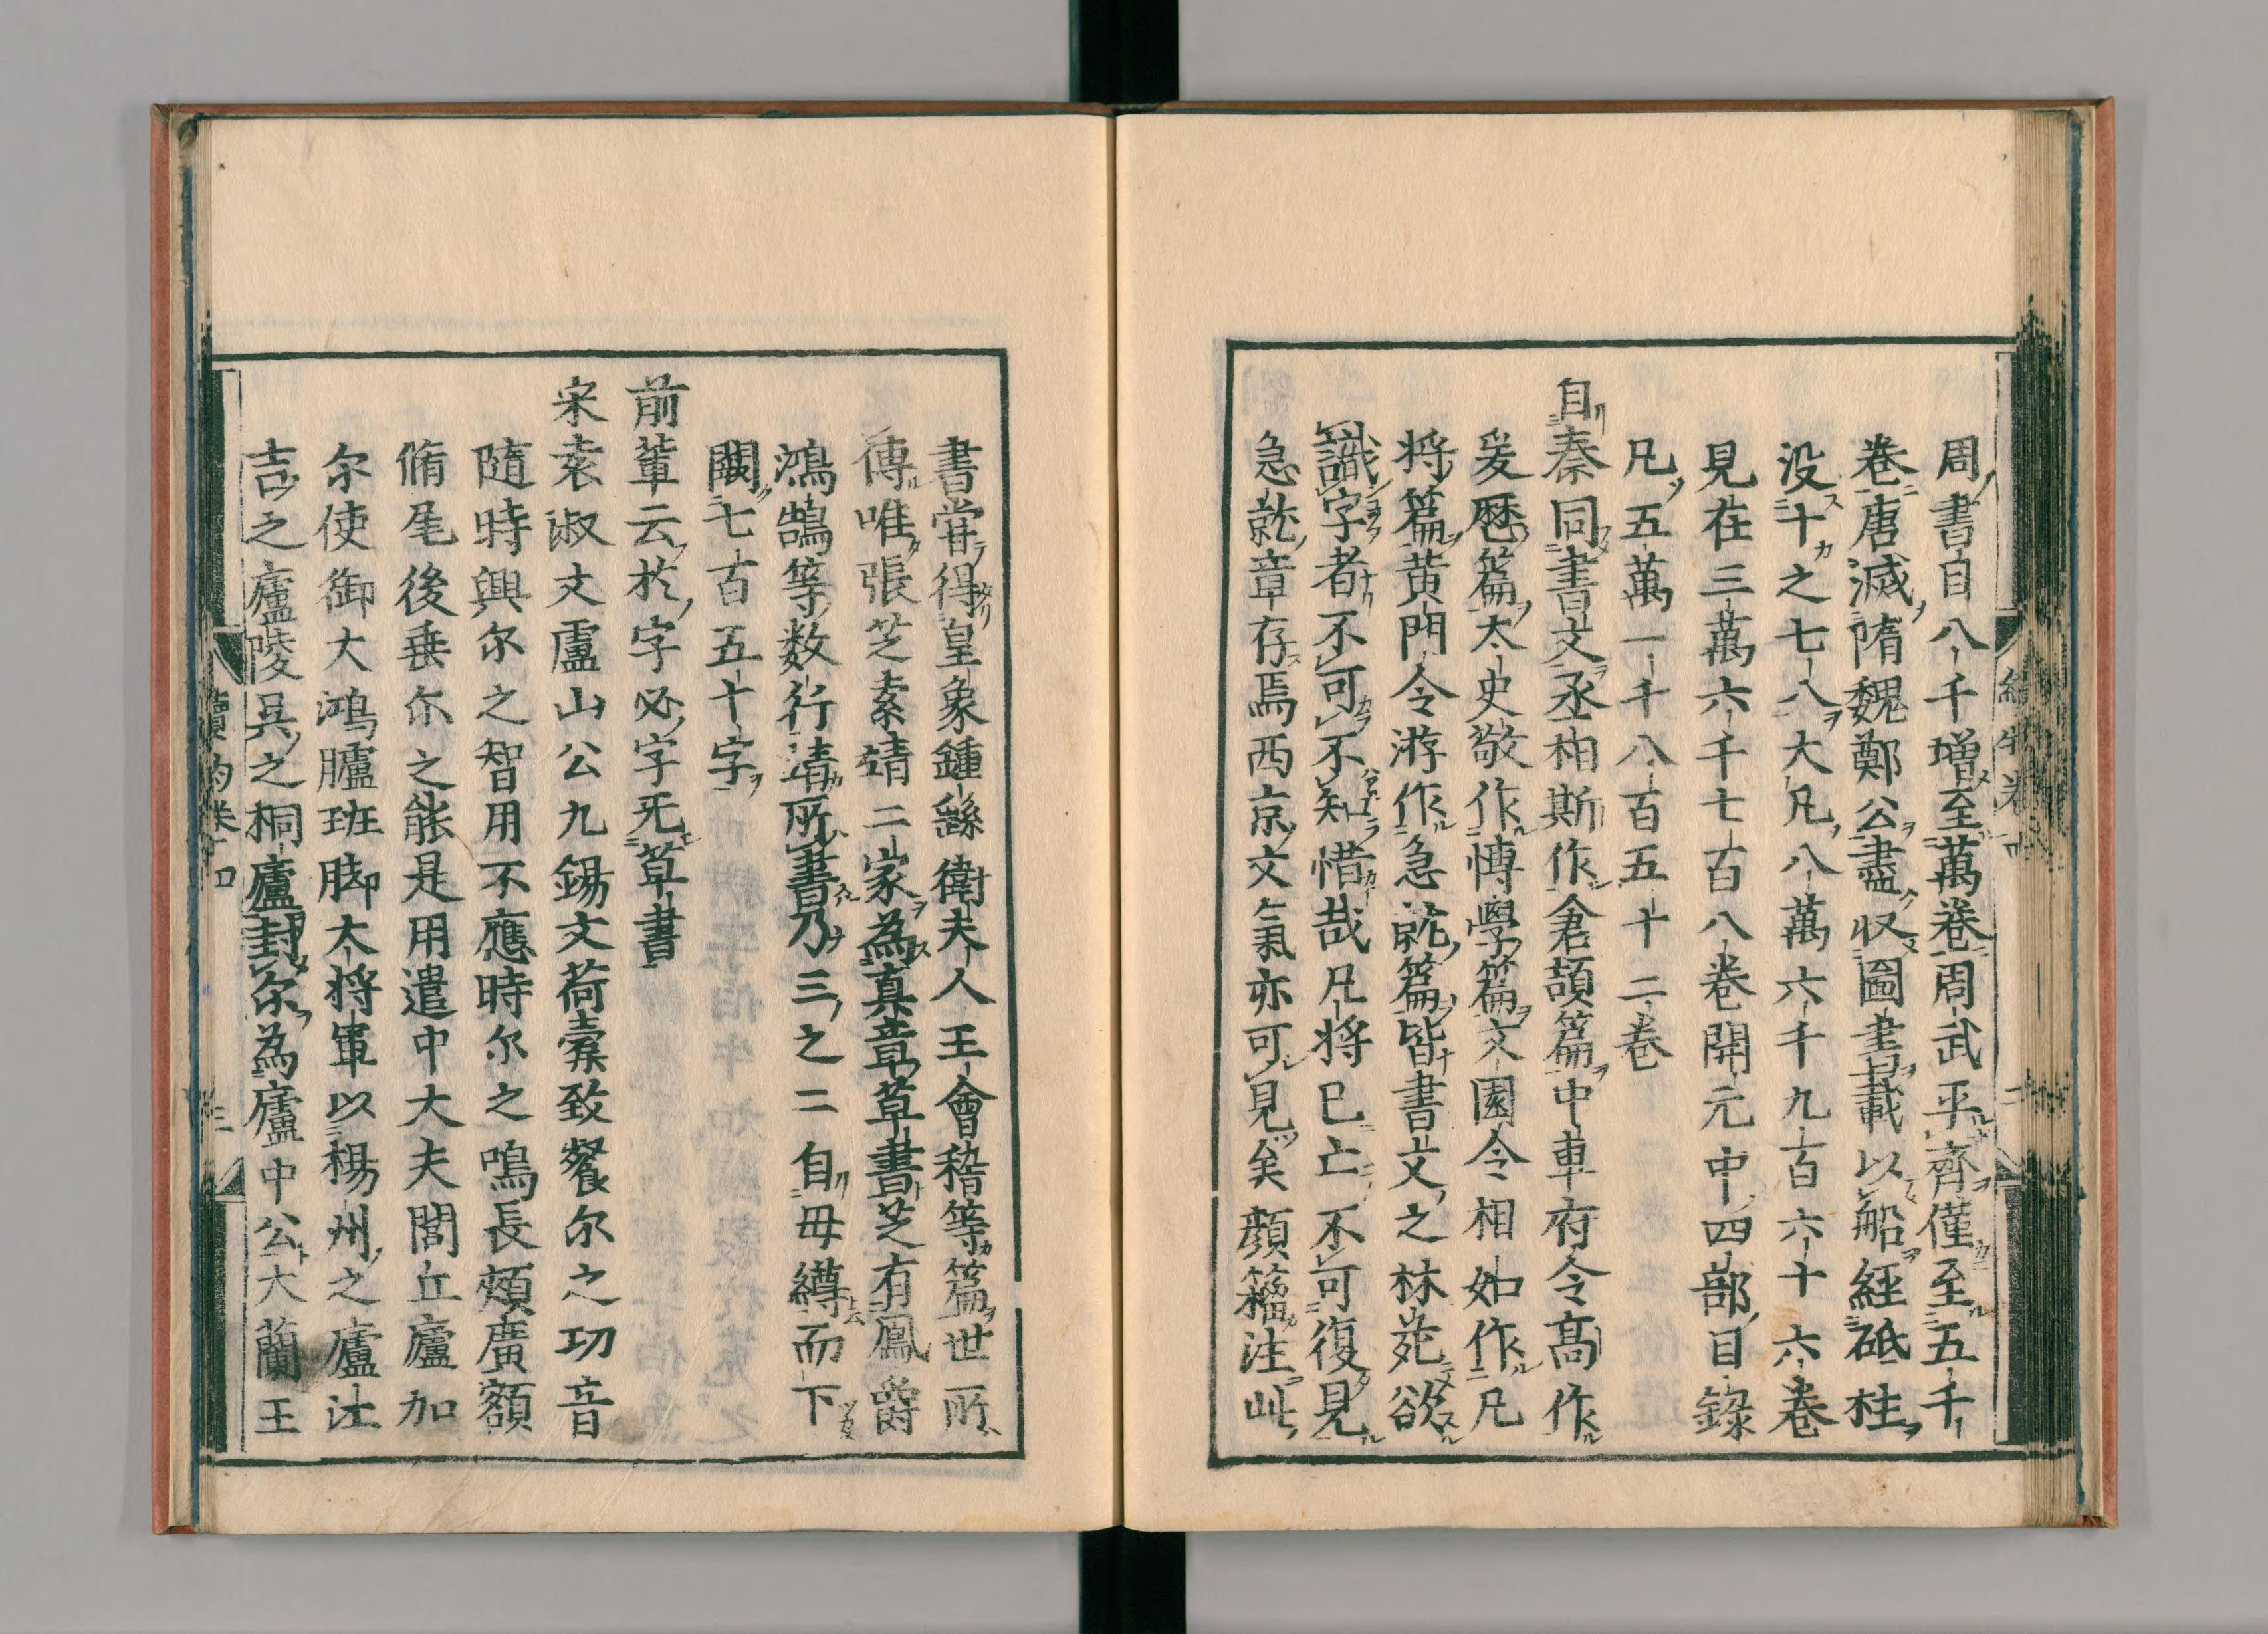 周書自八千増至萬卷周武平齊僅至五千
卷唐滅隋魏鄭公盡収圖書載以船經砥柱
没十之七八大凡八萬六千九百六十六卷
見在三萬六千七百八卷開元中四部目錄
凡五萬一千八百五十二卷
自秦同書文丞相斯作倉頡篇中車府令高作
爰歴篇太史敬作博學篇文園令相如作凡
將篇黄門令游作急就篇皆書文之林苑欲
識字者不可不知惜哉凡將已亡不可復見
急就章存焉西京文氣亦可見矣顔籀注此
書甞得皇象鍾繇衛夫人王會稽等篇世所
傳唯張芝索靖二家為真章草書芝有鳳爵
鴻鵠等数行靖所書乃三之二自母縛而下
闕七百五十字
前輩云於字必字旡草書
宋袁淑文盧山公九錫文荷槖致餐尔之功音
隨時興尔之智用不應時尔之鳴長頰廣額
脩尾後垂尓之能是用遣中大夫閭丘廬加
尓使御大鴻臚班脚大將軍以楊州之廬江
吉之廬陵呉之桐廬封尔為廬中公大蘭王